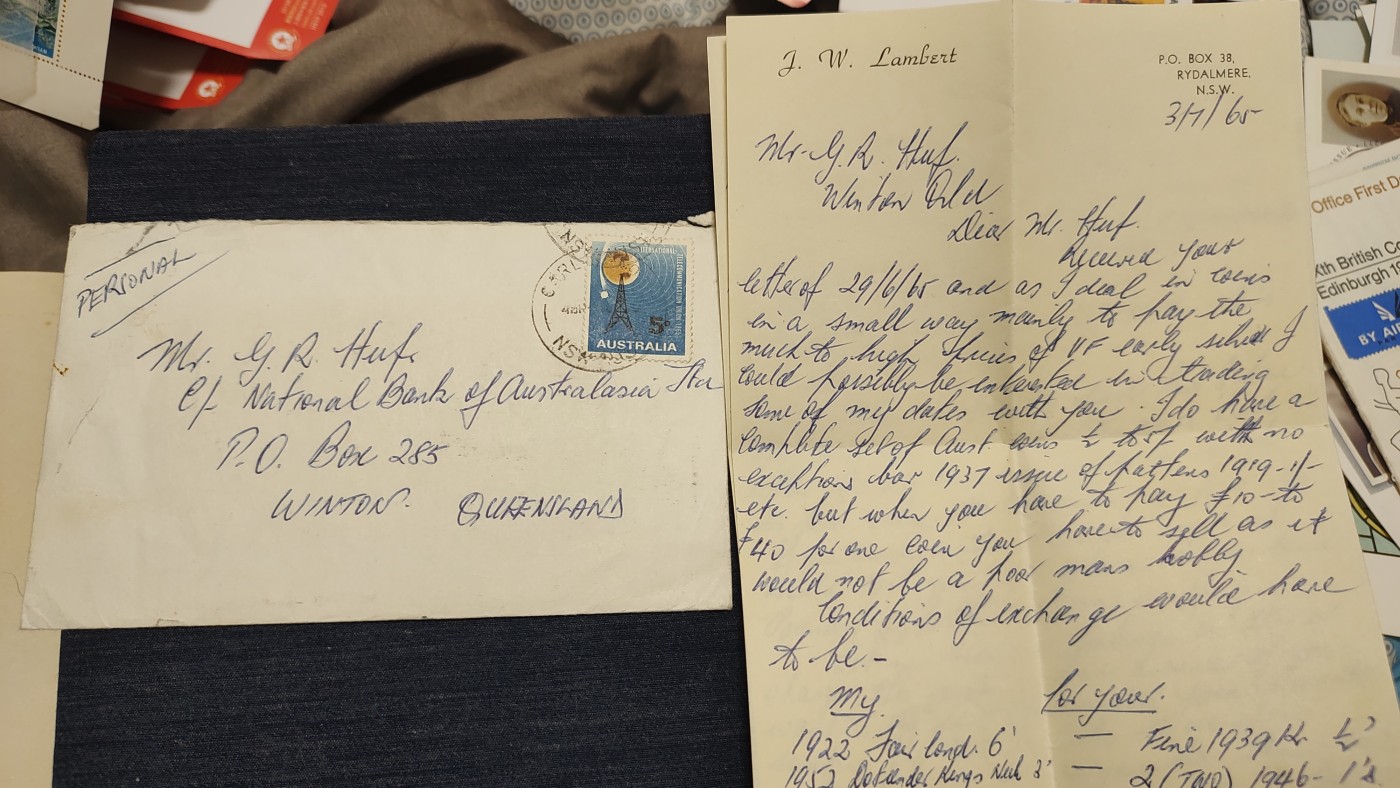 PERSONAL
Mr. G. R. Huf.
C/. National Bank of Australasia
P.O. Box 285
WINTON. QUEENSLAND
NSW
INTERNATIONAL
TELECOMMUNICATION UNION
5D
AUSTRALIA
J. W. Lambert
P.O. BOX 38,
RYDALMERE,
N.S.W.
3/7/65
Mr- G. R. Huf.
Winton Qld
Dear Mr. Huf.
Received your
letter of 29/6/65 and as I deal in coins
in a small way mainly to pay the
much to high prices of VF early silver I
could possibly be interested in trading
some of my dates with you. I do have a
complete set of Aust. coins ½ to 5/- with no
exceptions bar 1937 issue of pattens 1919-1/-
etc. but when you have to pay £10-to
£40 for one coin you have to sell as it
would not be a poor mans hobby
Conditions of exchange would have
to be.-
My for your.
1922 Fair cond. 6' — Fine 1939 Kr ½'
1952 — 2 (TWO) 1946- 1's
Office First D
xth British Co
Edinburgh 19
BY AI